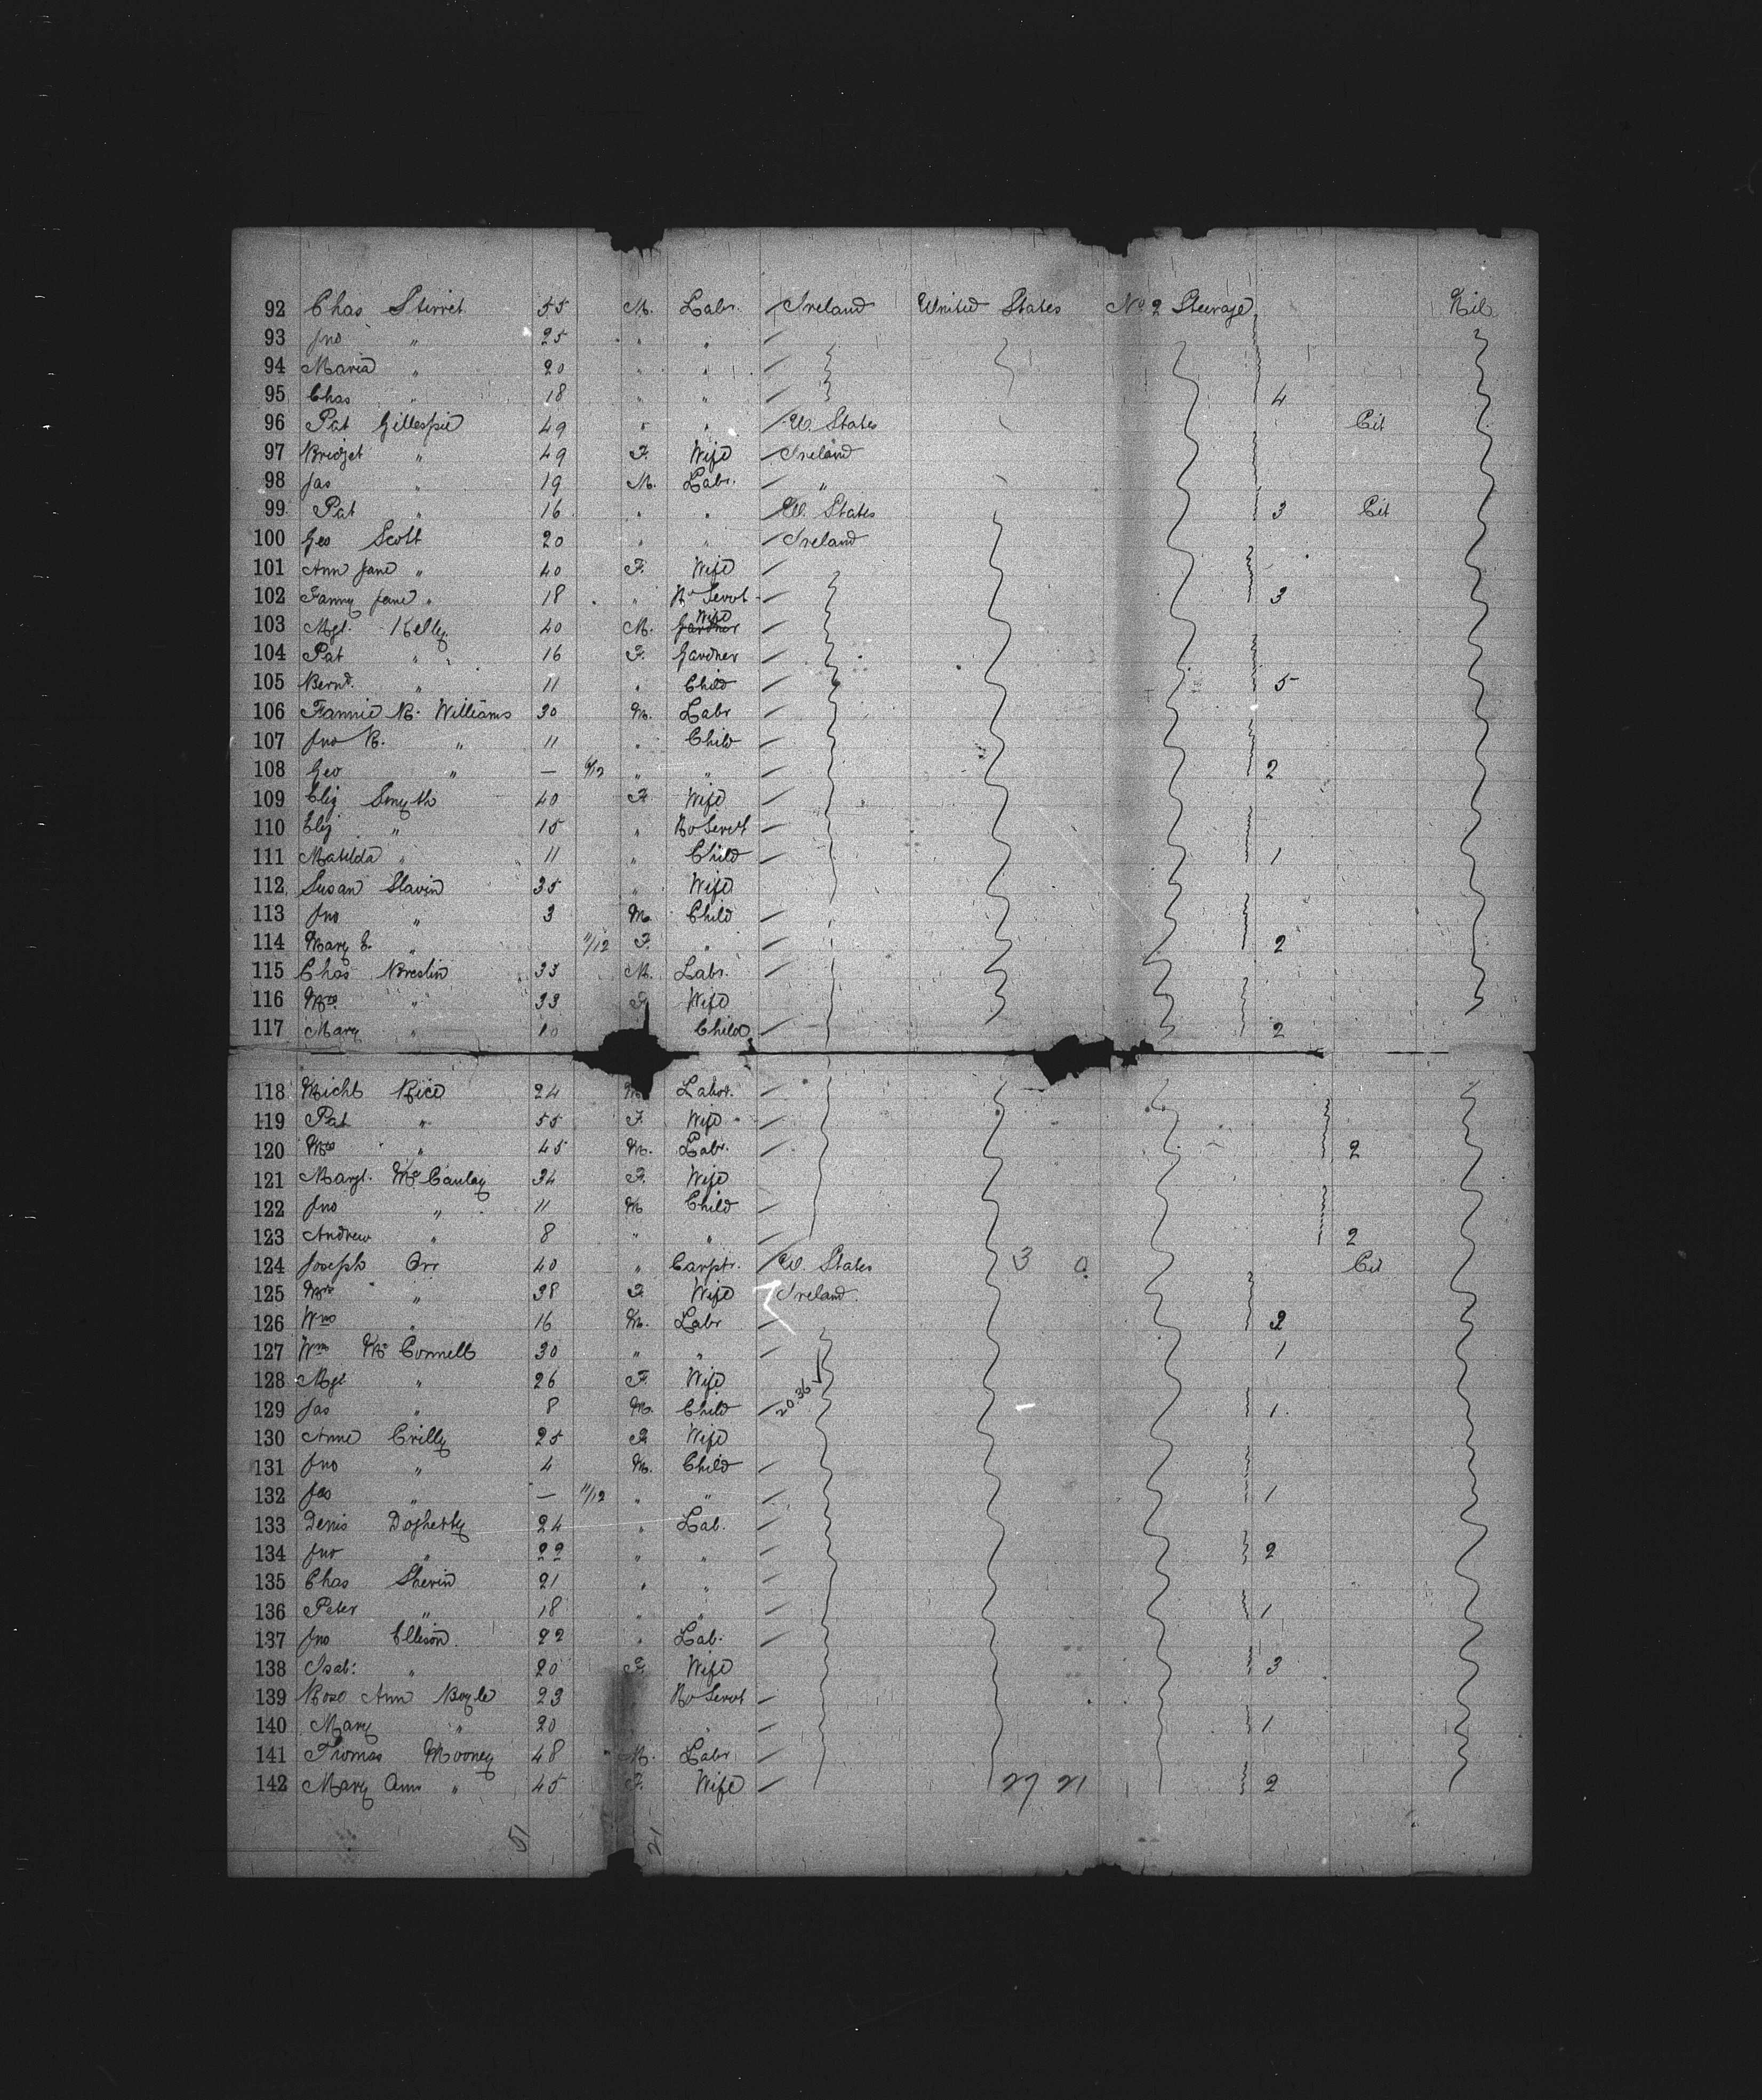 92 Chas Sterret 55 M. Labr. Ireland United States No 2 Steerage Nil
93 Jno " 25 " "
94 Maria " 20 " "
95 Chas " 18 " " 4
96 Pat Gillespie 49 " " U. States Cit
97 Bridget " 49 F. Wife Ireland
98 Jas " 19 M. Labr. "
99 Pat " 16 " " U. States 3 Cit
100 Geo Scott 20 " " Ireland
101 Ann Jane " 40 F. Wife
102 Fanny Jane " 18 " Servt 3
103 Mgt. Kelly 40 M. Wife
104 Pat " 16 F. Gardner
105 Bernd. " 11 " Child 5
106 Fannie B. Williams 30 M. Labr
107 Jno B. " 11 " Child
108 Geo " — 9/12 " " 2
109 Eliz Smyth 40 F. Wife
110 Eliz " 15 " Ho Servt
111 Matilda " 11 " Child 1
112 Susan Slavin 35 " Wife
113 Jno " 3 M. Child
114 Mary E. " 11/12 F. " 2
115 Chas Breslin 33 M. Labr.
116 Mrs " 33 F. Wife
117 Mary " 10 Child 2
118 Michl Rice 24 M Labor.
119 Pat " 55 F. Wife
120 Mrs " 45 M. Labr. 2
121 Margt. McCaulay 34 F. Wife
122 Jno " 11 M Child
123 Andrew " 8 " " 2
124 Joseph Orr 40 " Carptr. U. States 3 0 Cit
125 Mrs " 38 F. Wife Ireland
126 Wm " 16 M. Labr 2
127 Wm McConnell 30 " " 1
128 Mgt " 26 F. Wife
129 Jas " 8 M. Child 20.36 1
130 Anne Crilly 25 F. Wife
131 Jno " 4 M. Child
132 Jas " — 11/12 " " 1
133 Denis Dogherty 24 " Lab.
134 Jno " 22 " " 2
135 Chas Shevin 21 " "
136 Peter " 18 " " 1
137 Jno Ellison 22 " Lab.
138 Isab: " 20 F. Wife 3
139 Rose Ann Boyle 23 Ho Servt
140 Mary " 20 " 1
141 Thomas Mooney 48 M. Labr
142 Mary Ann " 45 F. Wife 27 21 2
51 21